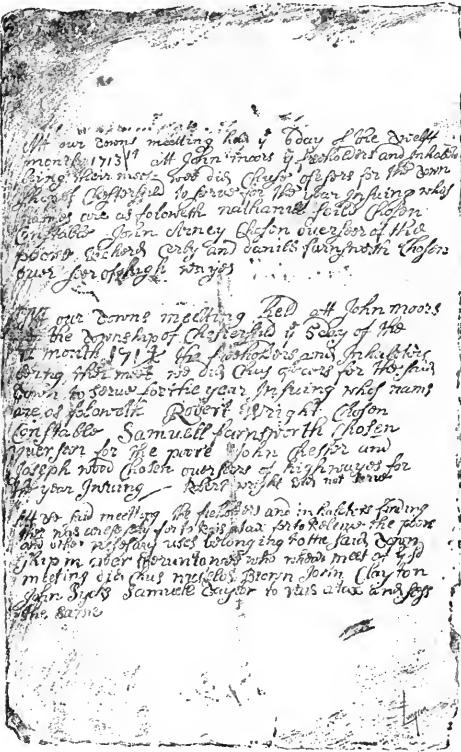 Att our Towns meeting had ye 6 day of the Twelft
month 1713/14 att John moors ye freholders and Inhabita
being their meet wee did Chuse ofesers for the Town
ship of Chesterfeild to serve for the year Insuing whos
names are as foloweth nathaniel Chosen
Constable John Chosen overseer of the
poore Richerd and daniell farnsworth Chosen
over seer of high wayes
Att our Towns meetting Held att John moors
the Township of Chesterfeild ye day of the
month the freeholders and Inhabiters
being ther meet we did Chus ofecers for the said
Town to serve for the year Insuing whos nams
are as foloweth Robert Wright Chosen
Constable Samuell farnsworth Chosen
overseer for the poore John Chesher and
Joseph wood Chosen overseers of highwayes for
the year Insuing Robert wright did not serve
Att ye said meetting the freholders and inhabiters finding
ther was for to Rais a tax for to Releive the poore
and other nesesary uses belonging to the said Town
ship in order therunto wee who when meet att ye sd
meeting did Chus Brown John Clayton
John Samuell Taylor to Rais a tax and
the same